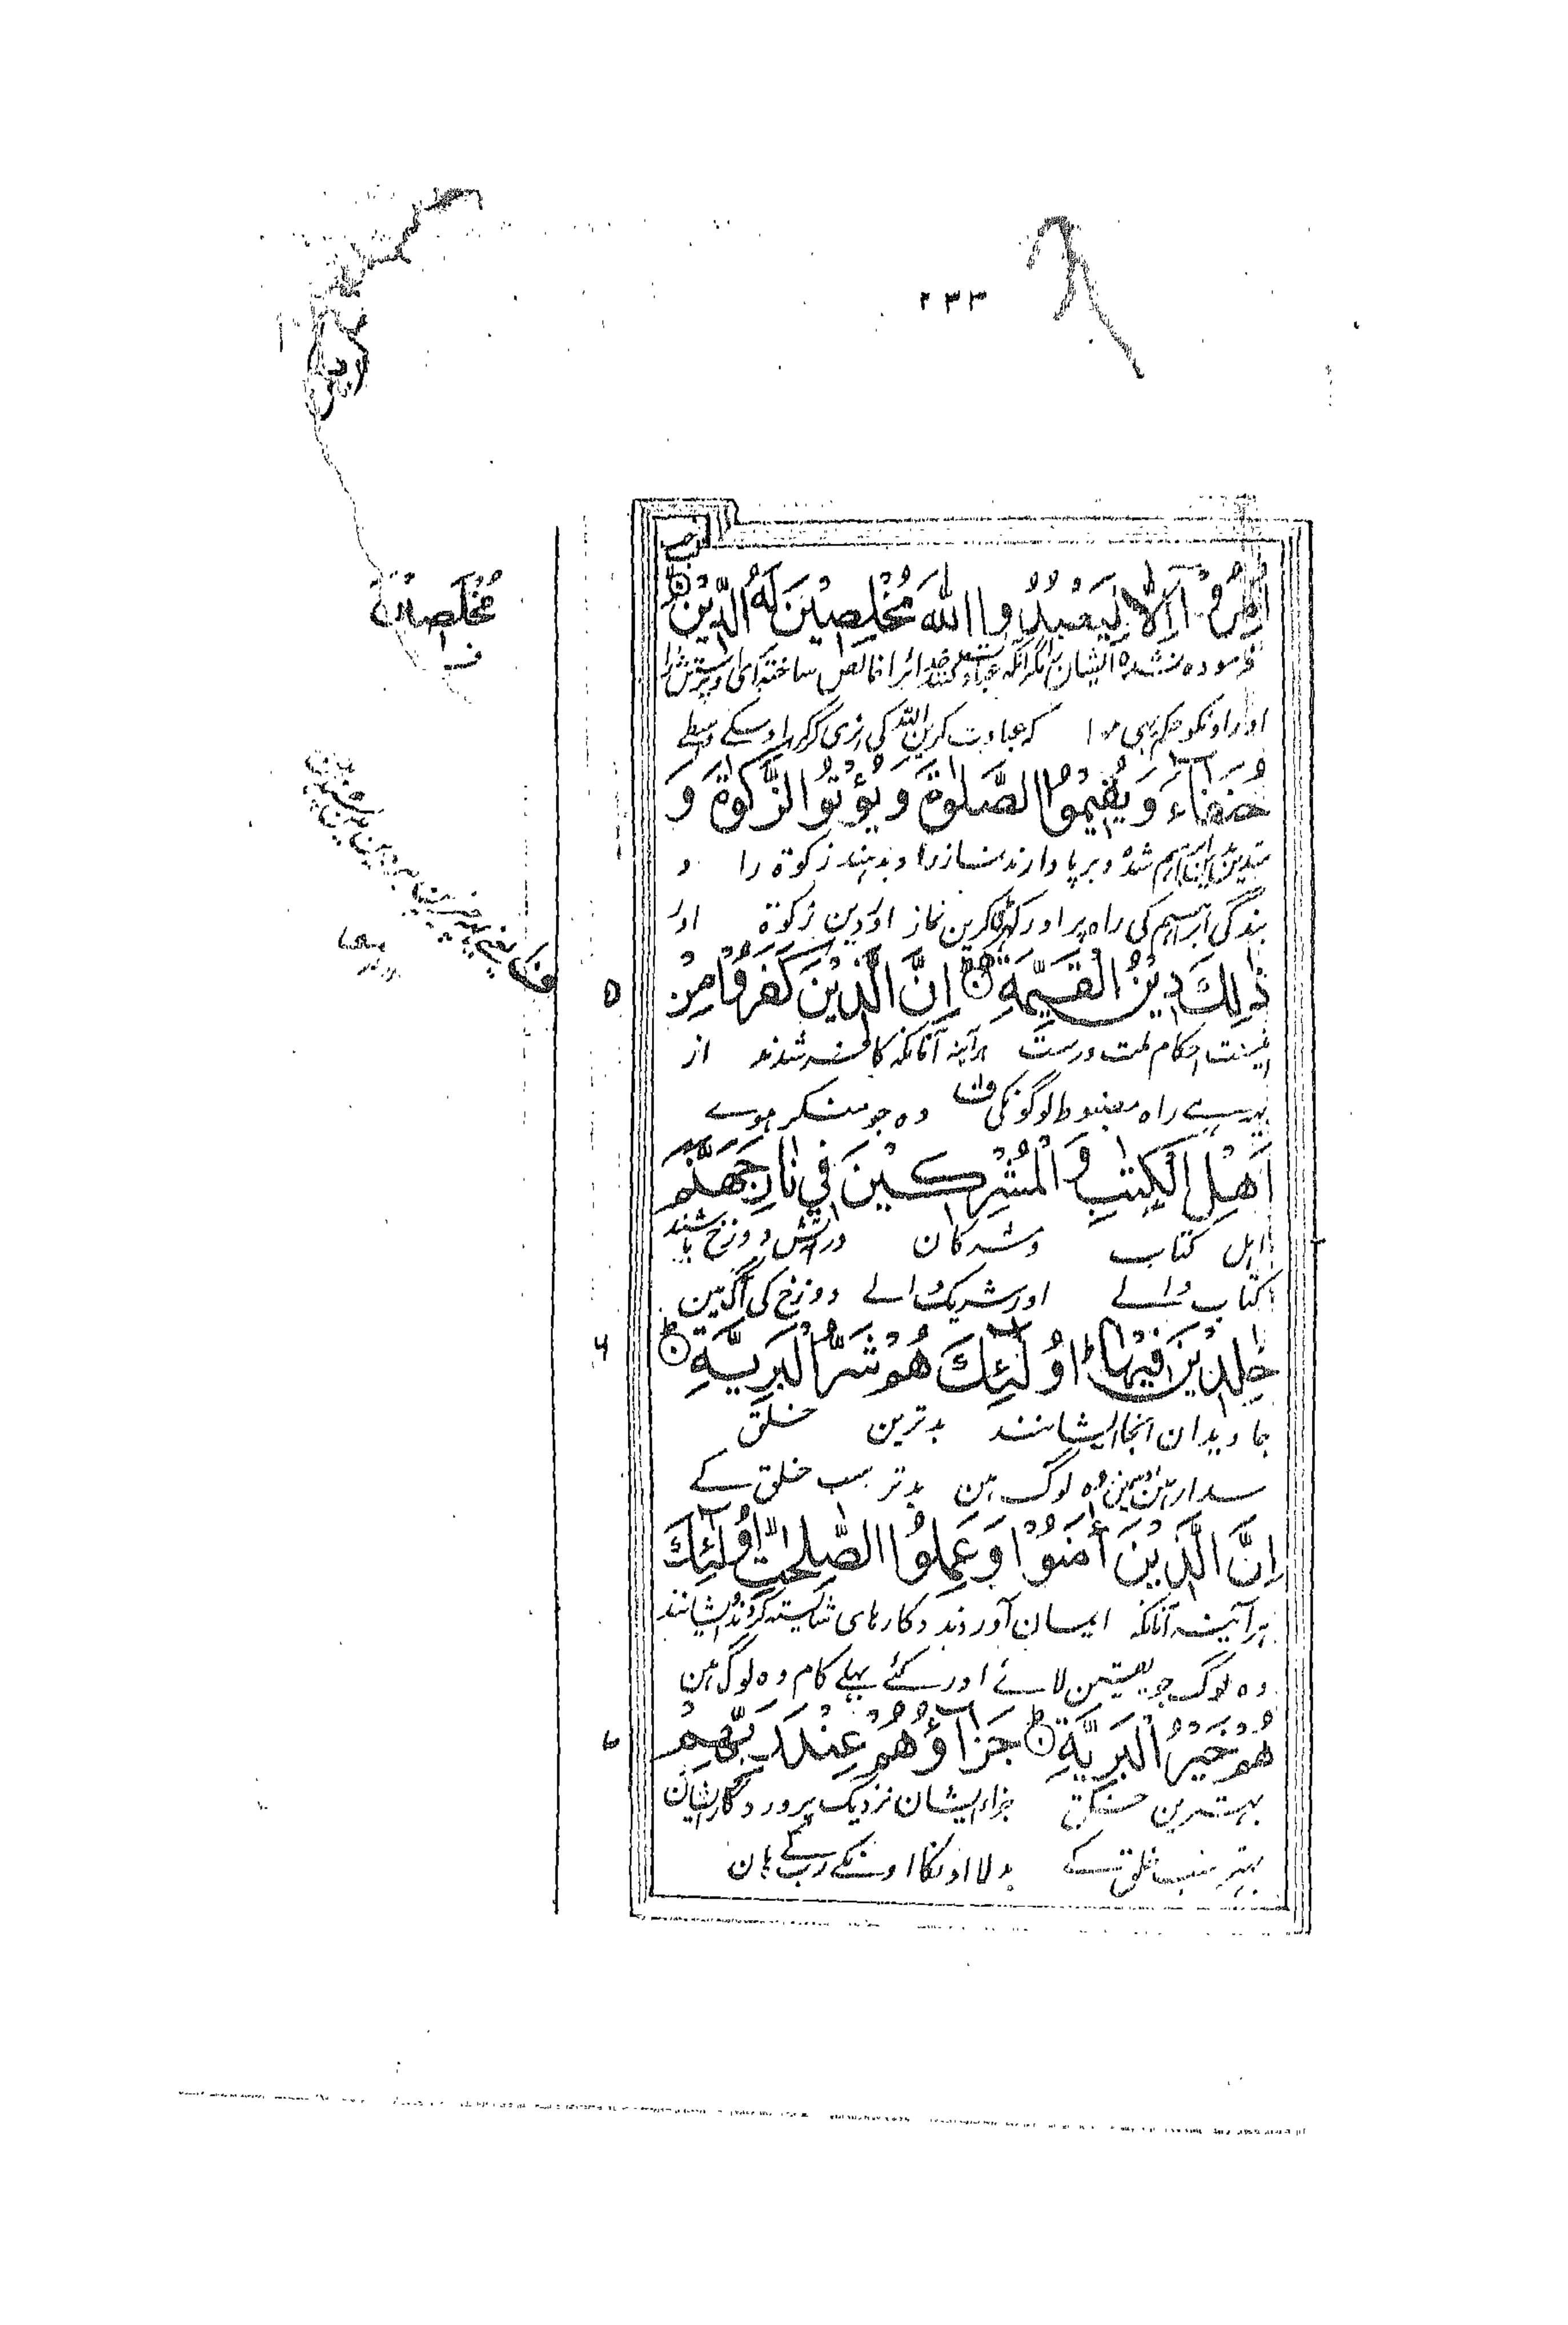 ۲۳۳
اُمِرُوْٓا اِلَّا لِيَعْبُدُوا اللّٰهَ مُخْلِصِيْنَ لَهُ الدِّيْنَ
فرموده نشده ایشان را مگر آنکه عبادت کنند خدا را خالص ساخته برای او پرستش را
اور اونکو حکم یہی ہوا کہ عبادت کرین اللہ کی نری کر کر اوسکے واسطے
حُنَفَآءَ وَ يُقِيْمُوا الصَّلٰوةَ وَ يُؤْتُوا الزَّكٰوةَ وَ
متدین بدین ابراهیم شده و برپا دارند نماز را و بدهند زکوة را و
بندگی ابراہیم کی راہ پر اور کھڑی کرین نماز اور دین زکوة اور
ذٰلِكَ دِيْنُ الْقَيِّمَةِ اِنَّ الَّذِيْنَ كَفَرُوْا مِنْ
اینست احکام ملت درست هرآینه آنانکه کافر شدند از
یہ ہے راہ مضبوط لوگونکی ف وہ جو منکر ہوے
اَهْلِ الْكِتٰبِ وَ الْمُشْرِكِيْنَ فِيْ نَارِ جَهَنَّمَ
اہل کتاب و مشرکان در آتش دوزخ باشند
کتاب والے اور شریک والے دوزخ کی آگ مین
خٰلِدِيْنَ فِيْهَا اُولٰٓئِكَ هُمْ شَرُّ الْبَرِيَّةِ
جاویدان آنجا ایشانند بدترین خلق
سدا رہین اوسمین وہ لوگ ہین بدتر سب خلق کے
اِنَّ الَّذِيْنَ اٰمَنُوْا وَ عَمِلُوا الصّٰلِحٰتِ اُولٰٓئِكَ
هرآئینه آنانکه ایمان آوردند و کارهای شایسته کردند ایشانند
وہ لوگ جو یقین لائے اور کئے بھلے کام وہ لوگ ہین
هُمْ خَيْرُ الْبَرِيَّةِ جَزَآؤُهُمْ عِنْدَ رَبِّهِمْ
بهترین خلق جزاء ایشان نزدیک پروردگار ایشان
بہتر سب خلق کے بدلا اونکا اونکے رب کے ہان
مُخْلِصِيْنَ
ف
۵
۶
۷